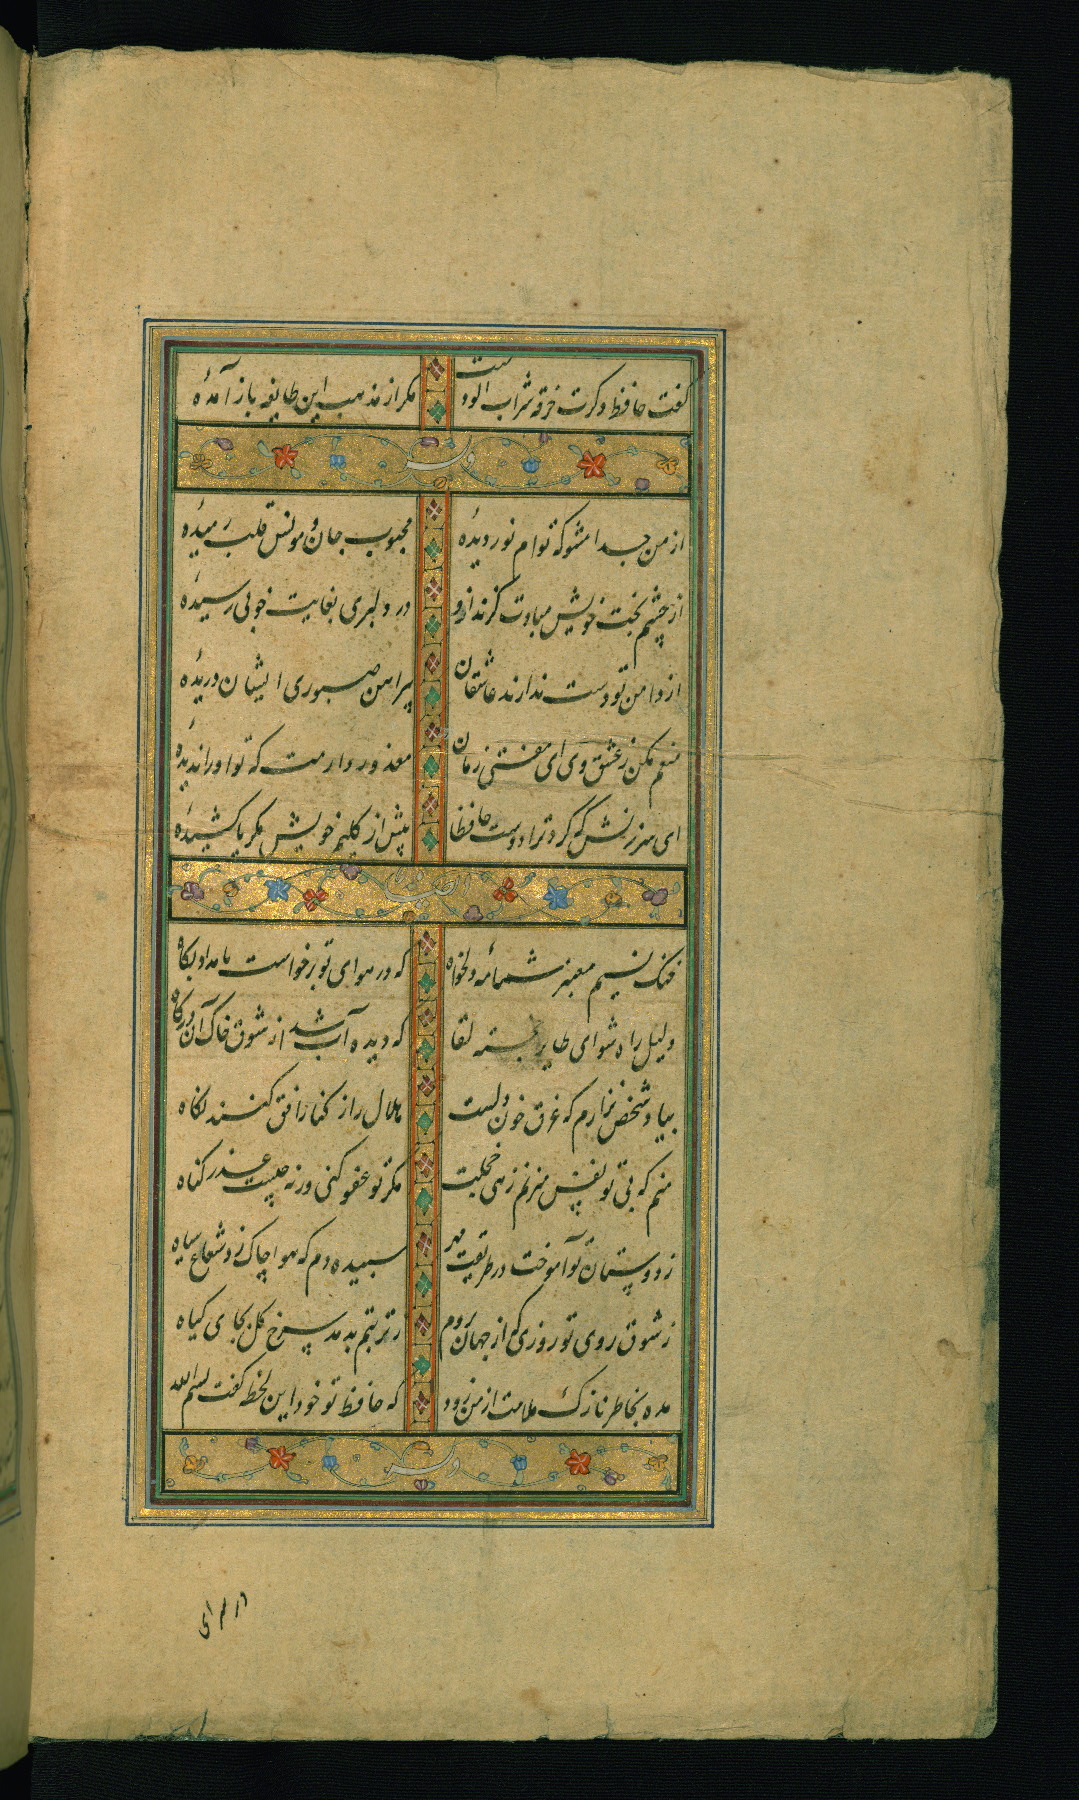 گفت حافظ دگرت خرقه شراب آلودست مگر از مذهب این طایفه باز آمدهٔ
وله
از من جدا مشو که توام نور دیدهٔ محبوب جان و مونس قلب رمیدهٔ
از چشم بخت خویش مبادت گزند از او در دلبری بغایت خوبی رسیدهٔ
از دامن تو دست ندارند عاشقان پیراهن صبوری ایشان دریدهٔ
منعم مکن ز عشق وی ای مفتی زمان معذور دارمت که تو او را ندیدهٔ
ای سرزنش که کرد ترا دوست حافظا بیش از گلیم خویش مگر پا کشیدهٔ
ایضا
خنک نسیم معنبر شمامهٔ دلخواه که در هوای تو برخواست بامداد بگاه
دلیل راه شو ای طایر خجسته لقا که دیده آب شد از شوق خاک آن درگاه
بیاد شخص نزارم که غرق خون دلست هلال را ز کنار افق کنند نگاه
منم که بی تو نفس میزنم زهی خجلت مگر تو عفو کنی ورنه چیست عذر گناه
ز دوستان تو آموخت در طریقت مهر سپیده دم که هوا چاک زد شعار سیاه
ز شوق روی تو روزی که از جهان بروم ز تربتم بدمد سرخ گل بجای گیاه
مده بخاطر نازک ملامت از من زود که حافظ تو خود این لحظه گفت بسم الله
وله